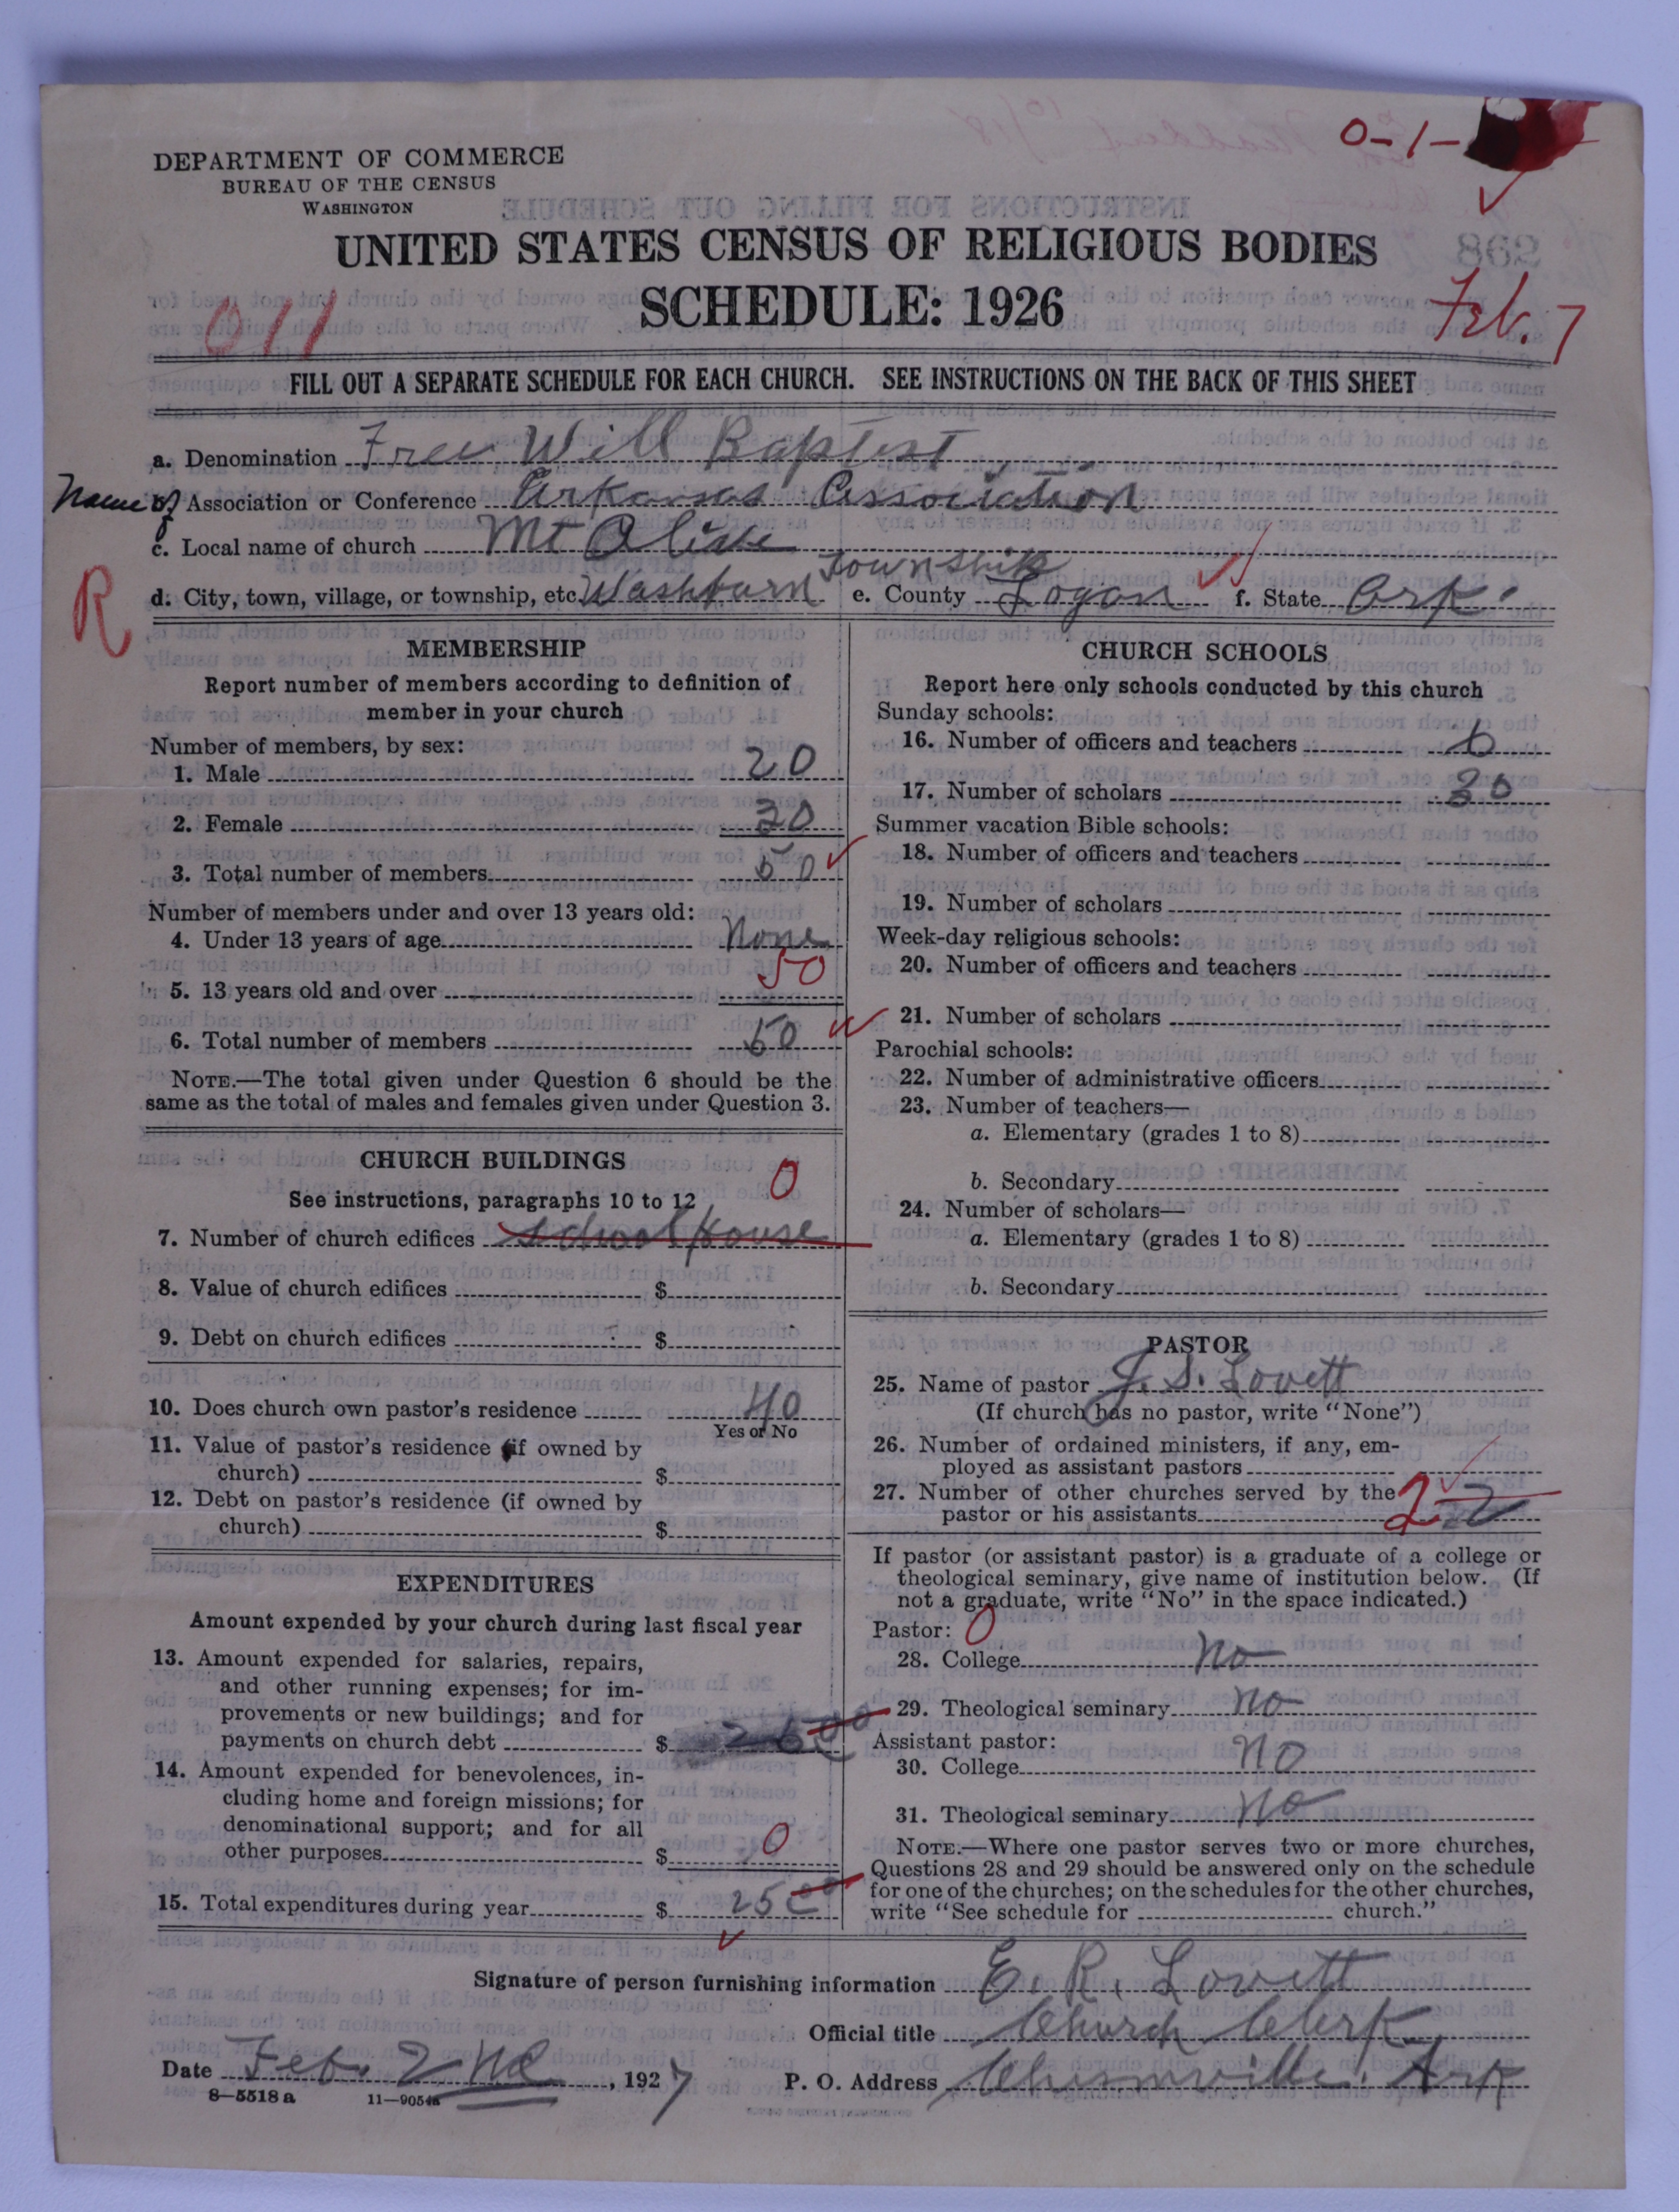 0-1-
DEPARTMENT OF COMMERCE
BUREAU OF THE CENSUS
WASHINGTON
UNITED STATES CENSUS OF RELIGIOUS BODIES
SCHEDULE: 1926
011
Feb. 7
FILL OUT A SEPARATE SCHEDULE FOR EACH CHURCH. SEE INSTRUCTIONS ON THE BACK OF THIS SHEET
a. Denomination Free Will Baptist
Name of Association or Conference Arkansas Association
c. Local name of church Mt Olive
d. City, town, village, or township, etc. Washburn Township e. County Logan f. State Ark.
R
MEMBERSHIP
Report number of members according to definition of
member in your church
Number of members, by sex:
1. Male 20
2. Female 30
3. Total number of members 50
Number of members under and over 13 years old:
4. Under 13 years of age None
5. 13 years old and over 50
6. Total number of members 50
NOTE.—The total given under Question 6 should be the
same as the total of males and females given under Question 3.
CHURCH BUILDINGS
See instructions, paragraphs 10 to 12 0
7. Number of church edifices School House
8. Value of church edifices $
9. Debt on church edifices $
10. Does church own pastor's residence No
Yes or No
11. Value of pastor's residence (if owned by
church) $
12. Debt on pastor's residence (if owned by
church) $
EXPENDITURES
Amount expended by your church during last fiscal year
13. Amount expended for salaries, repairs,
and other running expenses; for im-
provements or new buildings; and for
payments on church debt $
14. Amount expended for benevolences, in-
cluding home and foreign missions; for
denominational support; and for all
other purposes $ 0
15. Total expenditures during year $ 25 00
CHURCH SCHOOLS
Report here only schools conducted by this church
Sunday schools:
16. Number of officers and teachers 6
17. Number of scholars 30
Summer vacation Bible schools:
18. Number of officers and teachers
19. Number of scholars
Week-day religious schools:
20. Number of officers and teachers
21. Number of scholars
Parochial schools:
22. Number of administrative officers
23. Number of teachers—
a. Elementary (grades 1 to 8)
b. Secondary
24. Number of scholars—
a. Elementary (grades 1 to 8)
b. Secondary
PASTOR
25. Name of pastor J. S. Lovett
(If church has no pastor, write "None")
26. Number of ordained ministers, if any, em-
ployed as assistant pastors
27. Number of other churches served by the
pastor or his assistants 2 2
If pastor (or assistant pastor) is a graduate of a college or
theological seminary, give name of institution below. (If
not a graduate, write "No" in the space indicated.)
Pastor: 0
28. College No
29. Theological seminary No
Assistant pastor:
30. College No
31. Theological seminary No
NOTE.—Where one pastor serves two or more churches,
Questions 28 and 29 should be answered only on the schedule
for one of the churches; on the schedules for the other churches,
write "See schedule for church."
Signature of person furnishing information E. R. Lovett
Official title Church Clerk
Date Feb. 2nd, 1927 P. O. Address Chismville, Ark
8—5518 a 11—9054a